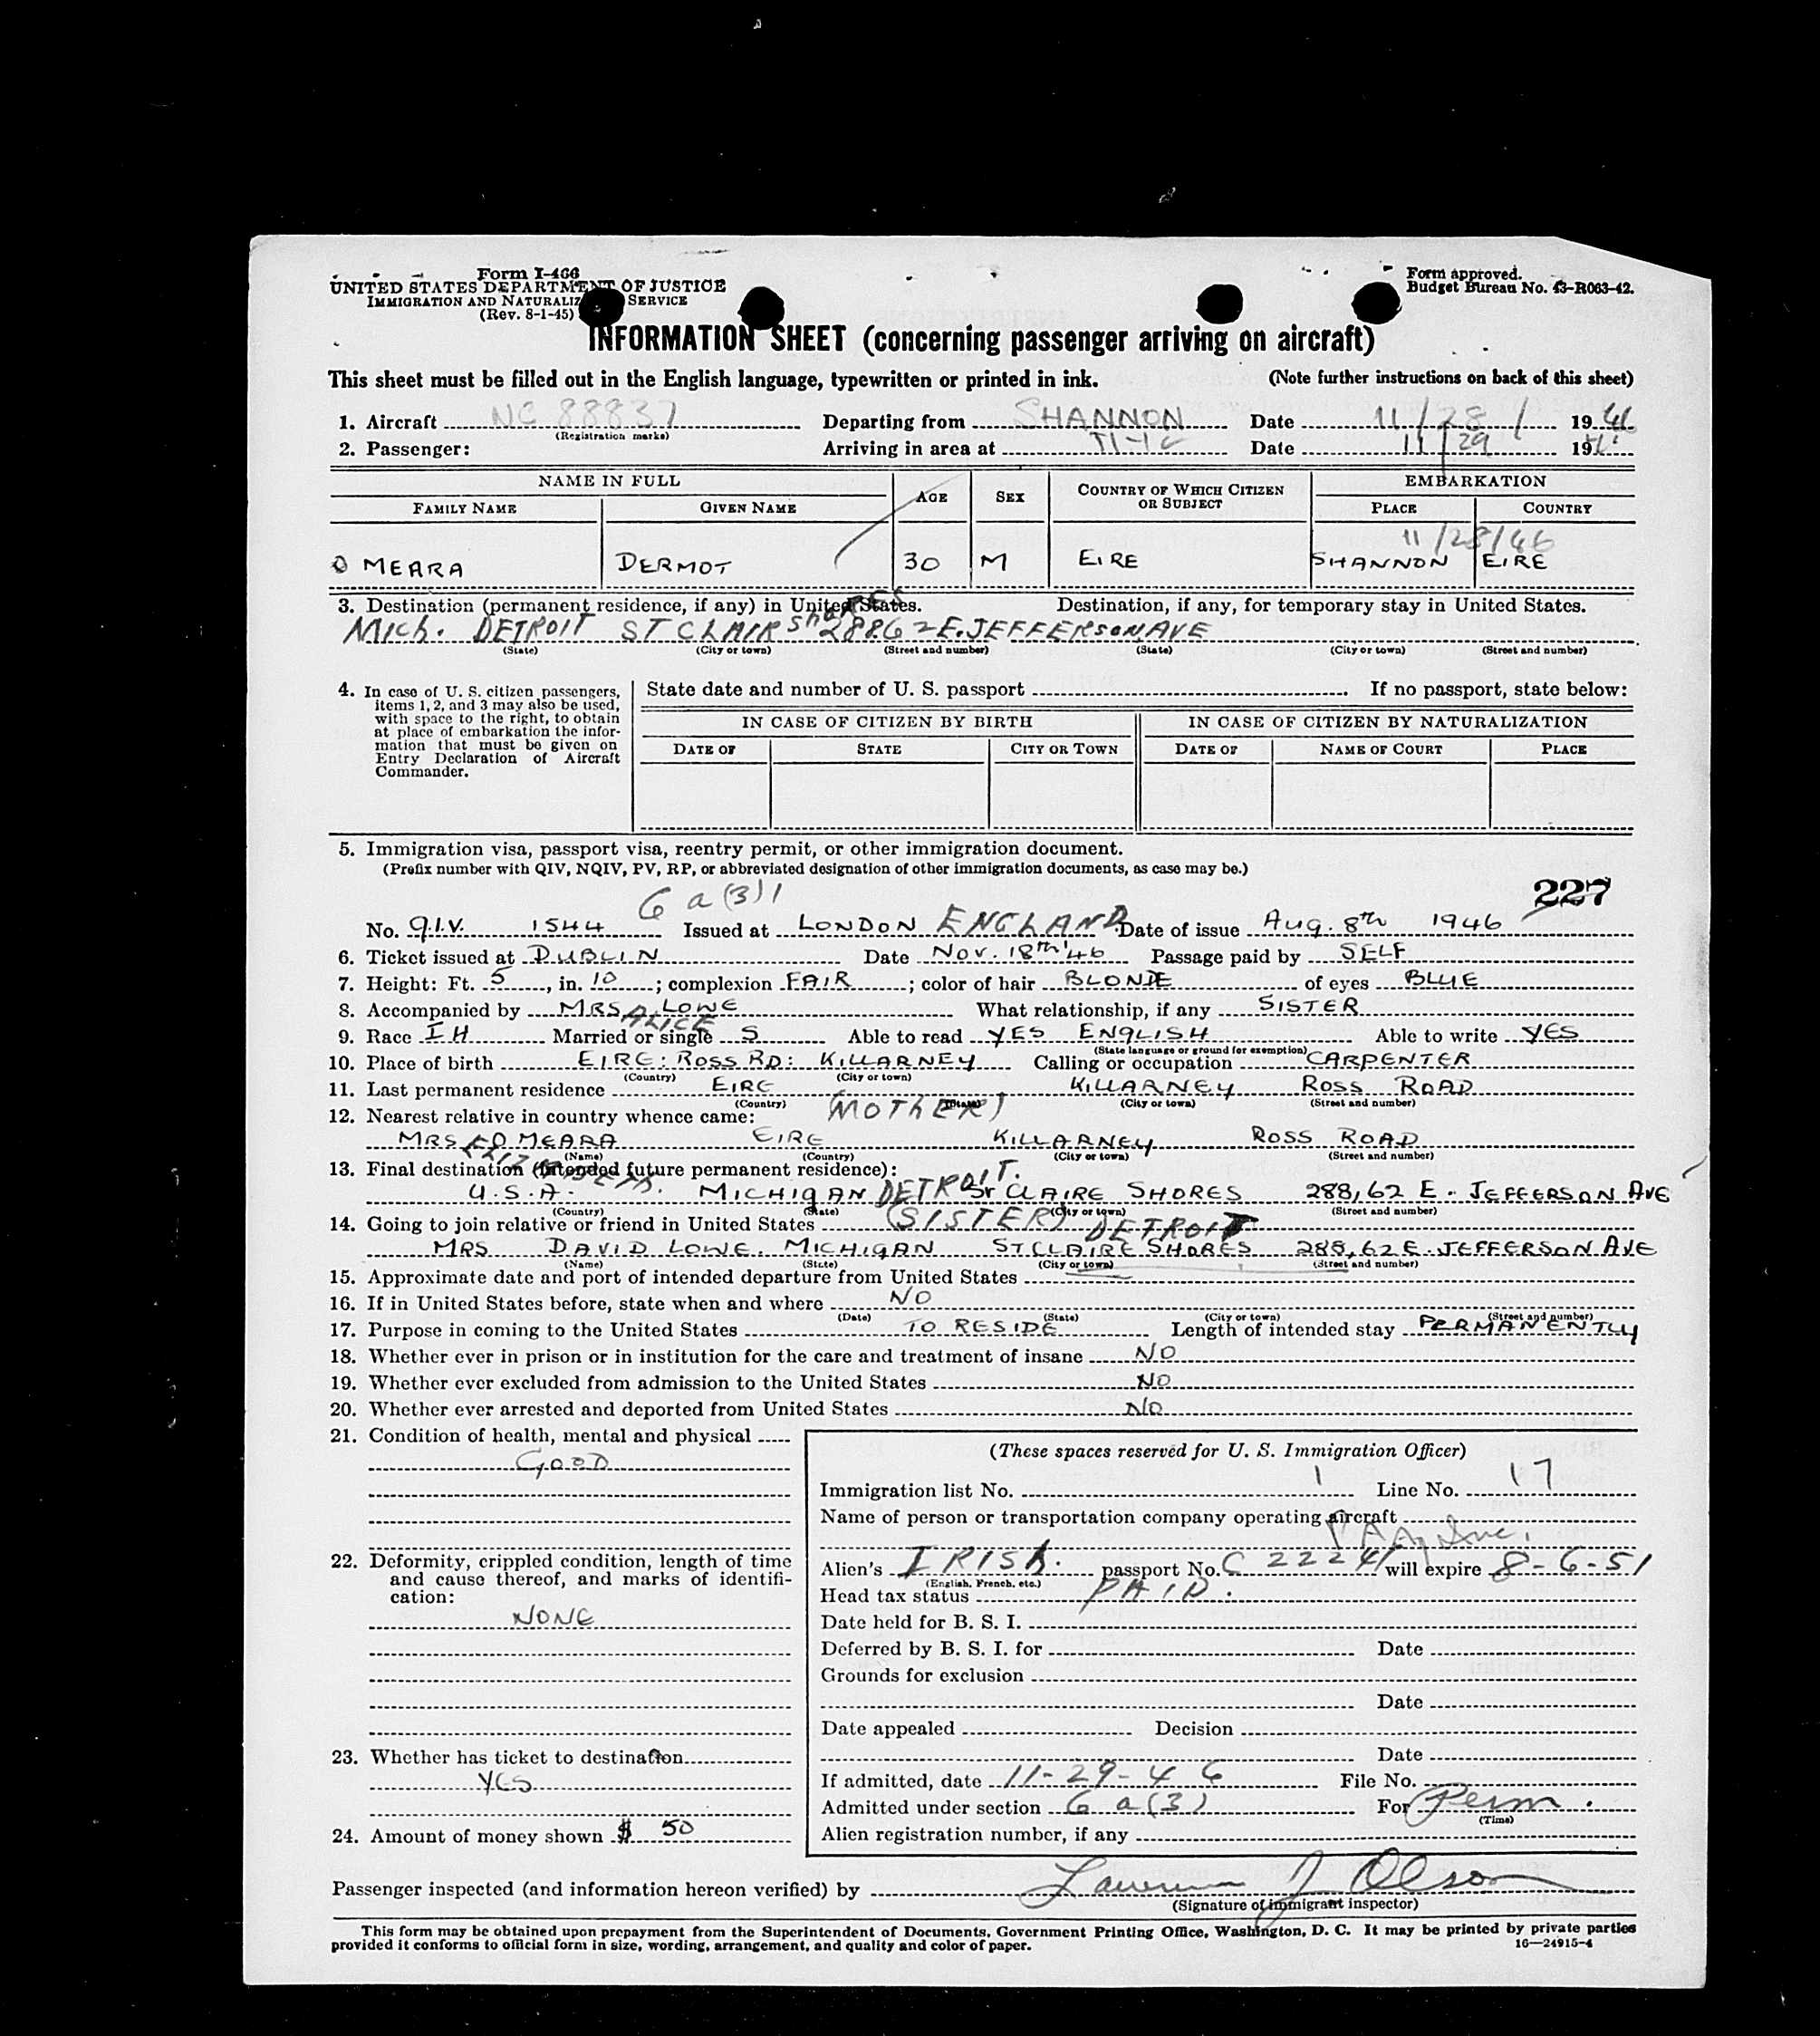 Form I-466
UNITED STATES DEPARTMENT OF JUSTICE
IMMIGRATION AND NATURALIZ SERVICE
(Rev. 8-1-45)
Form approved.
Budget Bureau No. 43-R063-42.
INFORMATION SHEET (concerning passenger arriving on aircraft)
This sheet must be filled out in the English language, typewritten or printed in ink. (Note further instructions on back of this sheet)
1. Aircraft NC 88837 Departing from SHANNON Date 11/28/ 1946
(Registration marks)
2. Passenger: Arriving in area at Date 11/29 194
NAME IN FULL AGE SEX COUNTRY OF WHICH CITIZEN OR SUBJECT EMBARKATION
FAMILY NAME GIVEN NAME PLACE COUNTRY
11/28/46
O MEARA DERMOT 30 M EIRE SHANNON EIRE
3. Destination (permanent residence, if any) in United States. Destination, if any, for temporary stay in United States.
Mich. DETROIT ST CLAIR ShoRES 28862 E. JEFFERSON AVE
(State) (City or town) (Street and number) (State) (City or town) (Street and number)
4. In case of U. S. citizen passengers, items 1, 2, and 3 may also be used, with space to the right, to obtain at place of embarkation the information that must be given on Entry Declaration of Aircraft Commander.
State date and number of U. S. passport . If no passport, state below:
IN CASE OF CITIZEN BY BIRTH IN CASE OF CITIZEN BY NATURALIZATION
DATE OF STATE CITY OR TOWN DATE OF NAME OF COURT PLACE
5. Immigration visa, passport visa, reentry permit, or other immigration document.
(Prefix number with QIV, NQIV, PV, RP, or abbreviated designation of other immigration documents, as case may be.)
6 a (3) 1 227
No. Q.I.V. 1544 Issued at LONDON ENGLAND Date of issue Aug. 8th 1946
6. Ticket issued at DUBLIN Date Nov. 18th '46 Passage paid by SELF
7. Height: Ft. 5, in. 10; complexion FAIR; color of hair BLONDE of eyes BLUE
8. Accompanied by MRS ALICE LOWE What relationship, if any SISTER
9. Race IH Married or single S Able to read YES ENGLISH Able to write YES
(State language or ground for exemption)
10. Place of birth EIRE: ROSS RD: KILLARNEY Calling or occupation CARPENTER
(Country) (City or town)
11. Last permanent residence EIRE KILLARNEY ROSS ROAD
(Country) (State) (City or town) (Street and number)
12. Nearest relative in country whence came: (MOThER)
MRS ELIZABETH O MEARA EIRE KILLARNEY ROSS ROAD
(Name) (Country) (City or town) (Street and number)
13. Final destination (intended future permanent residence):
U.S.A. MICHIGAN DETROIT. ST CLAIRE SHORES 288,62 E. JEFFERSON AVE
(Country) (State) (City or town) (Street and number)
14. Going to join relative or friend in United States (SISTER) DETROIT
MRS DAVID LOWE. MICHIGAN ST CLAIRE SHORES 288,62 E. JEFFERSON AVE
(Name) (State) (City or town) (Street and number)
15. Approximate date and port of intended departure from United States
16. If in United States before, state when and where NO
(Date) (State) (City or town) (Street and number)
17. Purpose in coming to the United States TO RESIDE Length of intended stay PERMANENTLY
18. Whether ever in prison or in institution for the care and treatment of insane NO
19. Whether ever excluded from admission to the United States NO
20. Whether ever arrested and deported from United States NO
21. Condition of health, mental and physical
GOOD
22. Deformity, crippled condition, length of time and cause thereof, and marks of identification:
NONE
23. Whether has ticket to destination
YES
24. Amount of money shown $ 50
(These spaces reserved for U. S. Immigration Officer)
Immigration list No. 1 Line No. 17
Name of person or transportation company operating aircraft
PAA, Inc.
Alien's IRISh. passport No. C 22241 will expire 8-6-51
(English, French, etc.)
Head tax status PAID.
Date held for B. S. I.
Deferred by B. S. I. for Date
Grounds for exclusion
Date
Date appealed Decision
Date
If admitted, date 11-29-46 File No.
Admitted under section 6 a (3) For Perm.
(Time)
Alien registration number, if any
Passenger inspected (and information hereon verified) by J Olson
(Signature of immigrant inspector)
This form may be obtained upon prepayment from the Superintendent of Documents, Government Printing Office, Washington, D. C. It may be printed by private parties
provided it conforms to official form in size, wording, arrangement, and quality and color of paper. 16—24915-4